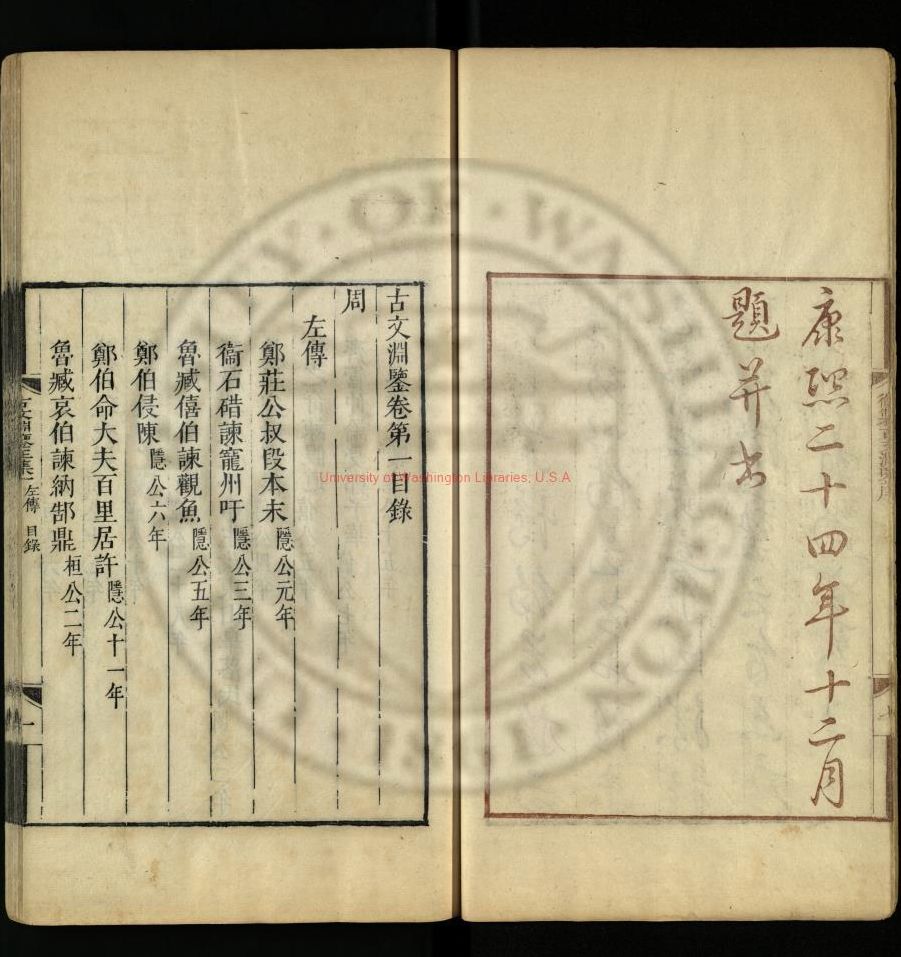 康熙二十四年十二月
題并書
古文淵鑒卷第一目錄
周
左傳
鄭莊公叔段本末 隱公元年
衞石碏諫寵州吁 隱公三年
魯臧僖伯諫觀魚 隱公五年
鄭伯侵陳 隱公六年
鄭伯命大夫百里居許 隱公十一年
魯臧哀伯諫納郜鼎 桓公二年
左傳 目錄
一
University of Washington Libraries, U.S.A